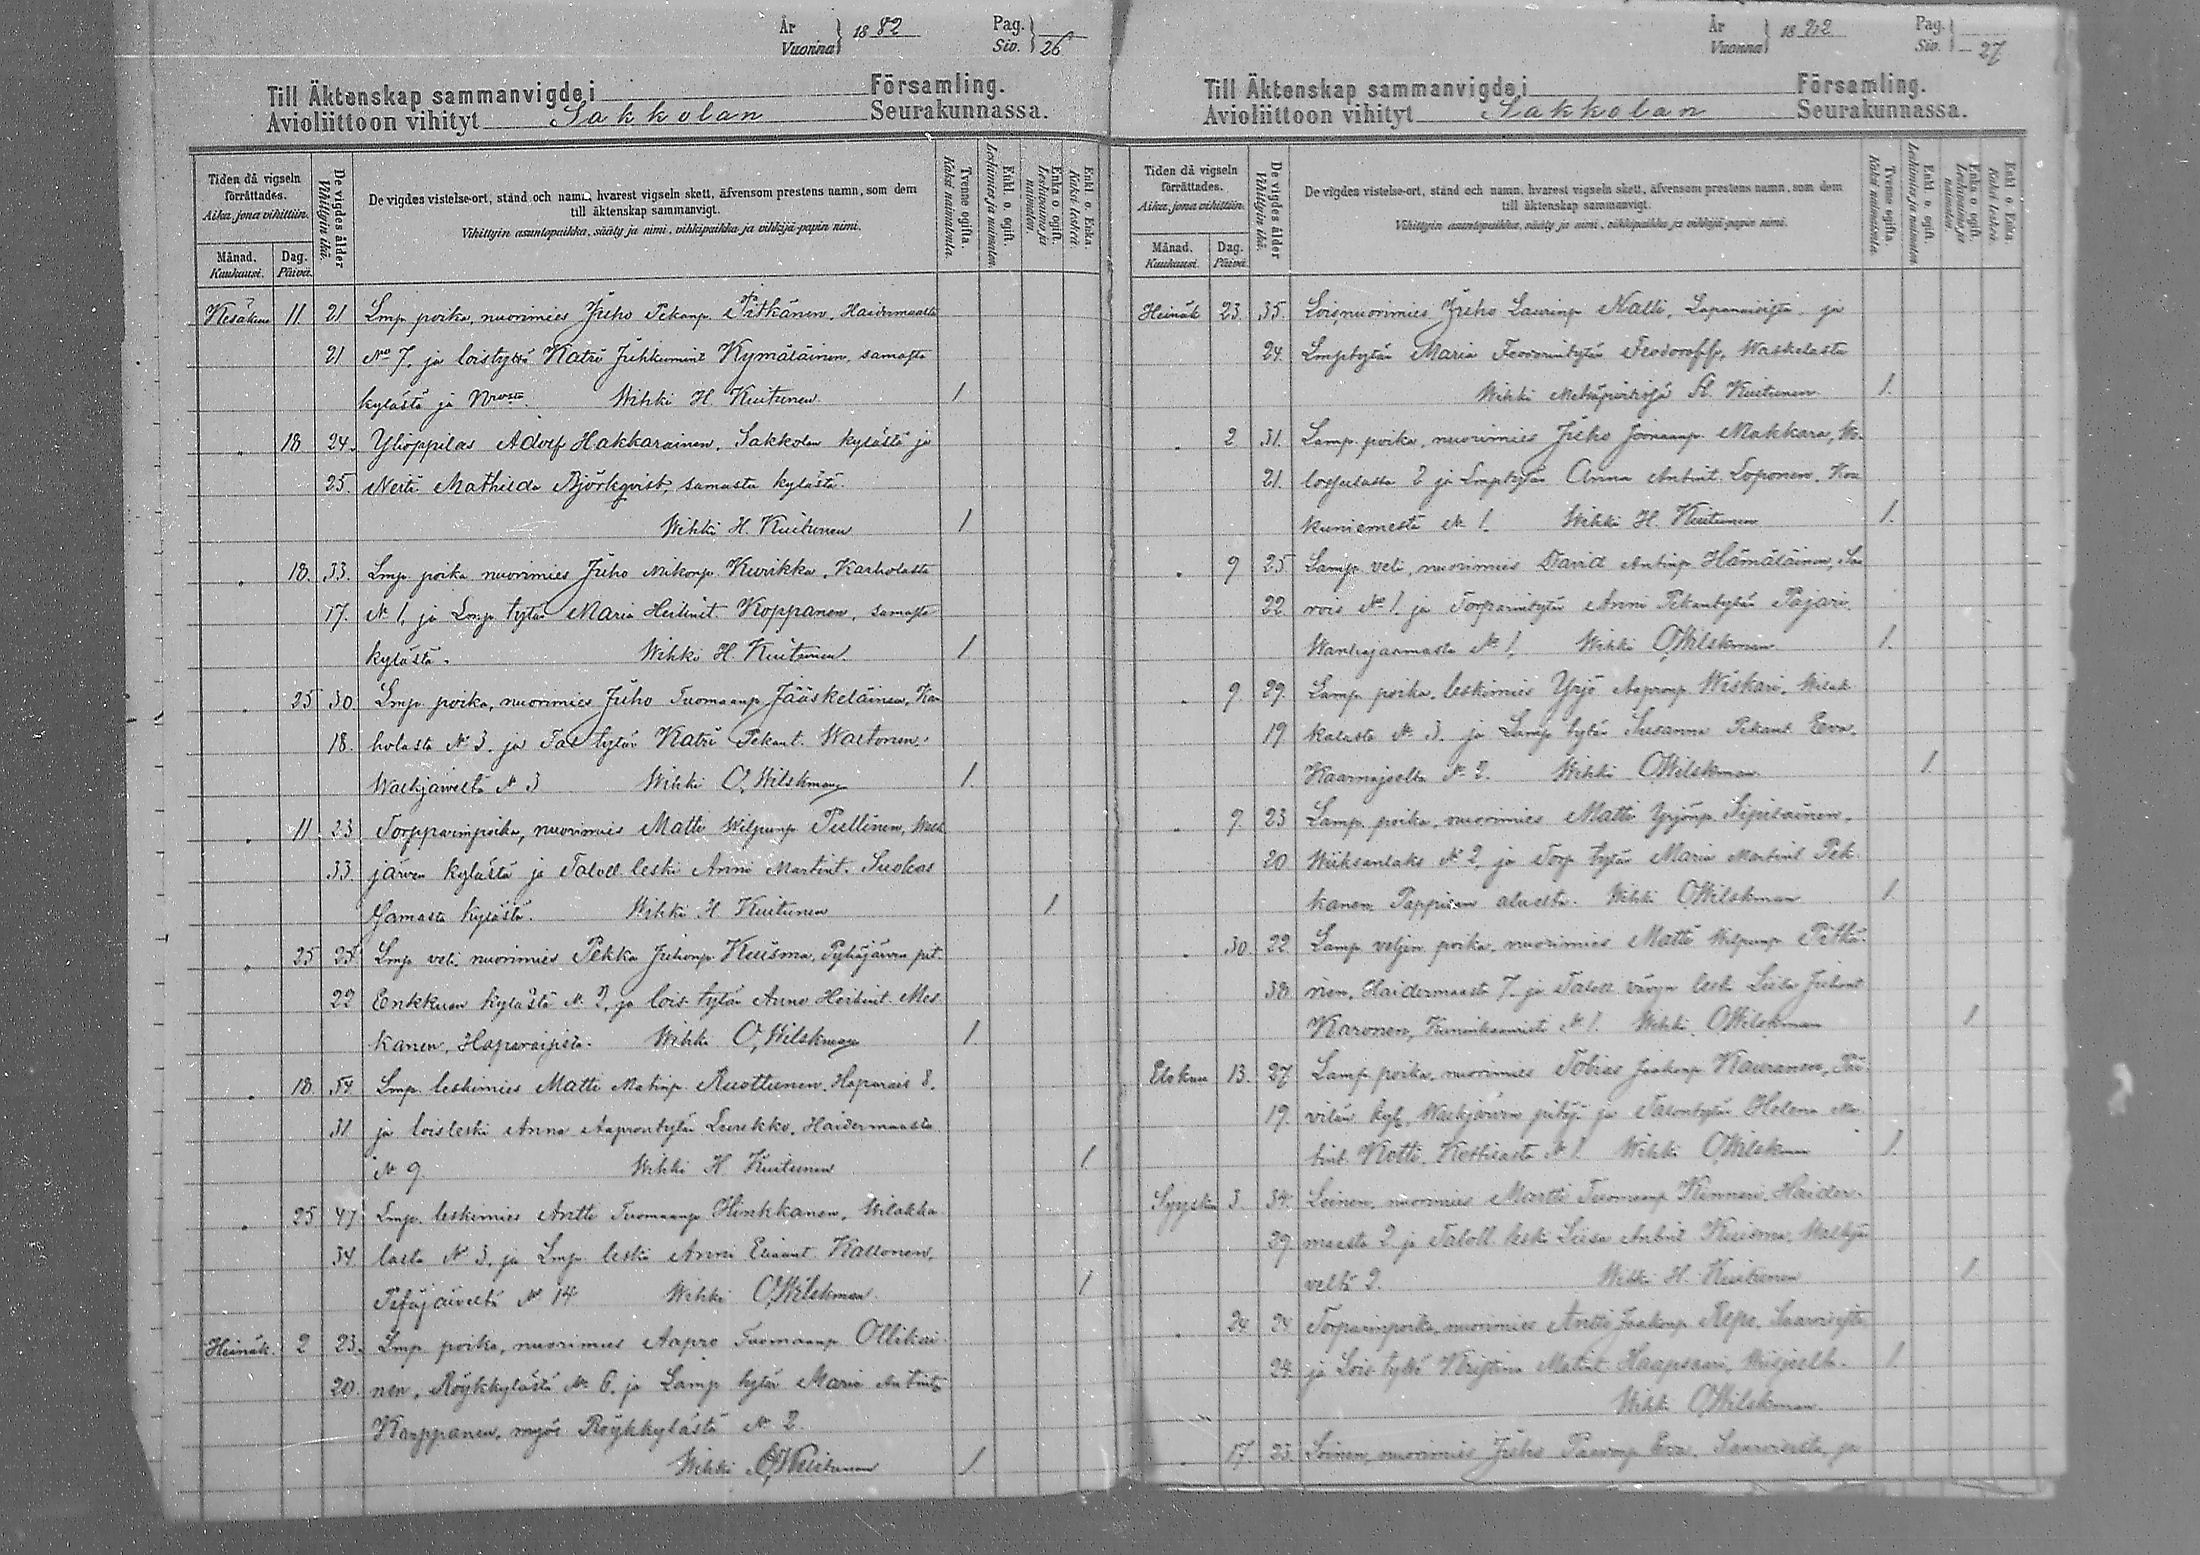 År
Vuonna } 1882
Pag.
Siv. } 26
Till Äktenskap sammanvigde i Församling.
Avioliittoon vihityt Sakkolan Seurakunnassa.
Tiden då vigseln förrättades.
Aika, jona vihittiin.
Månad.
Kuukausi.
Dag.
Päivä.
De vigdes ålder
Vihittyin ikä.
De vigdes vistelse-ort, stånd och namn, hvarest vigseln skett, äfvensom prestens namn, som dem
till äktenskap sammanvigt.
Vihittyin asuntopaikka, sääty ja nimi, vihkipaikka ja vihkijä-papin nimi.
Tvenne ogifta.
Kaksi naimatonta.
Enkl. o. ogift.
Leskimies ja naimaton.
Enka o. ogift.
Leskivaimo ja naimaton.
Enkl. o. Enka.
Kaksi leskeä.
Kesäkuu 11 21 Lmp poika, nuorimies Juho Pekanp. Pitkänen, Haidermaasta
21 No 7. ja loistyttö Katri Juhkumint Kymäläinen, samasta
kylästä ja Nrosta. Wihki H. Kuitunen 1
" 18 24. Ylioppilas Adolf Hakkarainen, Sakkolan kylästä ja
25. Neiti Mathilda Björkqvist, samasta kylästä.
Wihki H. Kuitunen 1
" 18. 33. Lmp poika nuorimies Juho Mikonp. Kurikka, Karholasta
17. N 1, ja Lmp tytär Maria Heikint. Koppanen, samasta
kylästä. Wihki H. Kuitunen. 1
" 25 30 Lmp poika, nuorimies Juho Tuomaanp Jääskeläinen, Kar
18. holasta N 3. ja Tal tytär Katri Pekant. Waltonen.
Walkjärveltä N 3 Wihki O. Wilskman 1.
" 11. 23 Torpparinpoika, nuorimies Matti Wilpunp Pullinen, Walk
33. järven kylästä ja Taloll leski Anni Martint. Suokas
Samasta kylästä. Wihki H Kuitunen 1
" 25 25 Lmp. veli, nuorimies Pekka Juhonp Kuisma, Pyhäjärven pit.
22 Enkkuan kylästä N 2, ja lois. tytär Anna Heikint. Mes
kanen, Haparaisista. Wihki O. Wilskman 1.
" 18. 54 Lmp. leskimies Matti Matinp. Ruottunen, Haparais 8.
31. ja lois leski Anna Aaprontytär Lurekko, Haidermaasta
N 9. Wihki H Kuitunen 1
" 25 47 Lmp. leskimies Antti Tuomaanp Hinkkanen, Wilakka
34 lasta N 3. ja Lmp leski Anni Eliaant Kallonen,
Petäjärveltä N 14 Wihki O. Wilskman 1
Heinäk. 2 23. Lmp poika, nuorimies Aapro Tuomaanp Ollikai
20. nen, Röykkylästä N 6. ja Lamp tytär Maria Antint
Karppanen, myös Röykkylästä N 2.
Wihki Kuitunen 1
År
Vuonna } 1882
Pag.
Siv. } 27
Till Äktenskap sammanvigde i Församling.
Avioliittoon vihityt Sakkolan Seurakunnassa.
Tiden då vigseln förrättades.
Aika, jona vihittiin.
Månad.
Kuukausi.
Dag.
Päivä.
De vigdes ålder
Vihittyin ikä.
De vigdes vistelse-ort, stånd och namn, hvarest vigseln skett, äfvensom prestens namn, som dem
till äktenskap sammanvigt.
Vihittyin asuntopaikka, sääty ja nimi, vihkipaikka ja vihkijä-papin nimi.
Tvenne ogifta.
Kaksi naimatonta.
Enkl. o. ogift.
Leskimies ja naimaton.
Enka o. ogift.
Leskivaimo ja naimaton.
Enkl. o. Enka.
Kaksi leskeä.
Heinäk 23. 35. Lois, nuorimies Juho Laurinp Nalli, Lapanaisista ja
24. Lmptytär Maria Feodorintytär Feodoroff, Waskelasta
Wihki H. Kuitunen 1.
" 2 31. Lamp. poika, nuorimies Juho Joonaanp. Makkara, Wo
21. lossulasta 2 ja Lmptytär Anna Antint. Loponen, Kou
kuniemestä N 1. Wihki H. Kuitunen 1.
" 9 25 Lamp. veli, nuorimies David Antinp Hämäläinen, Saa
22 rois N 1. ja Torparintytär Anni Pekantytär Pajari,
Wanhajaamasta N 1. Wihki O. Wilskman 1.
" 9. 29. Lamp poika, leskimies Yrjö Aapronp Wiskari, Wilak
19 kalasta N 3. ja Lamp tytär Susanna Pekant Eeva,
Kaarnajoelta N 2. Wihki O. Wilskman 1.
" 9. 23 Lamp. poika, nuorimies Matti Yrjönp Sipiläinen,
20 Wiiksanlaks N 2, ja Torp tytär Maria Martint Pek
kanen Pappilan aluelta. Wihki O. Wilskman 1.
" 30. 22. Lamp veljen poika, nuorimies Matti Wilpunp Pitkä
38. nen, Haidermaasta 7. ja Taloll. vävyn leski Liisa Juhont
Karonen, N 1. Wihki O. Wilskman 1
Elokuu 13. 27. Lamp poika, nuorimies Tobias Jaakonp Kauranen, Päi
19. vilän kyl. Walkjärven pitäjä ja Talontytär Helena Ma
tint. Kotti, Kottilasta N 1. Wihki O. Wilskman 1.
Syyskuu 3. 34. Loinen, nuorimies Martti Tuomaanp Kinnari, Haider
39 maasta 2 ja Taloll. leski Liisa Antint Kuisma, Walkjär
veltä 2. Wihki H. Kuitunen 1
" 24 24 Torparinpoika, nuorimies Antti Jaakonp Repo, Saaroisista
24 ja Lois tyttö Kristiina Matint Haapsaari, Wiisjoelta. 1.
Wihki O. Wilskman
" 17. 23. Loinen, nuorimies Juho Paavonp Eeva, Saaroisista, ja